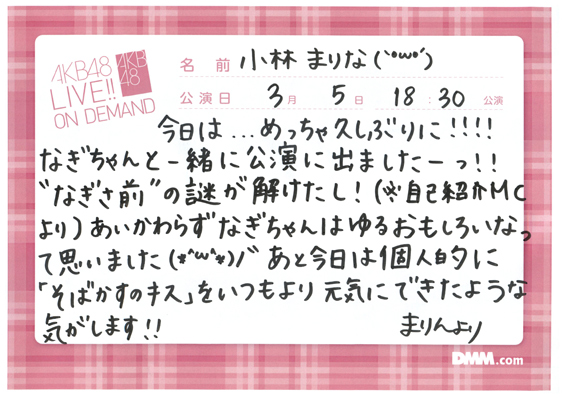 AKB48
LIVE!!
ON DEMAND
AKB
48
名 前 小林 まりな(`•ω•´)
公演日 3月 5日 18:30 公演
今日は...めっちゃ久しぶりに!!!!
なぎちゃんと一緒に公演に出ましたーっ!!
"なぎさ前"の謎が解けたし!(※自己紹介MC
より)あいかわらずなぎちゃんはゆるおもしろいなっ
て思いました(*^ω^*)/" あと今日は個人的に
「そばかすのキス」をいつもより元気にできたような
気がします!! まりんより
DMM.com